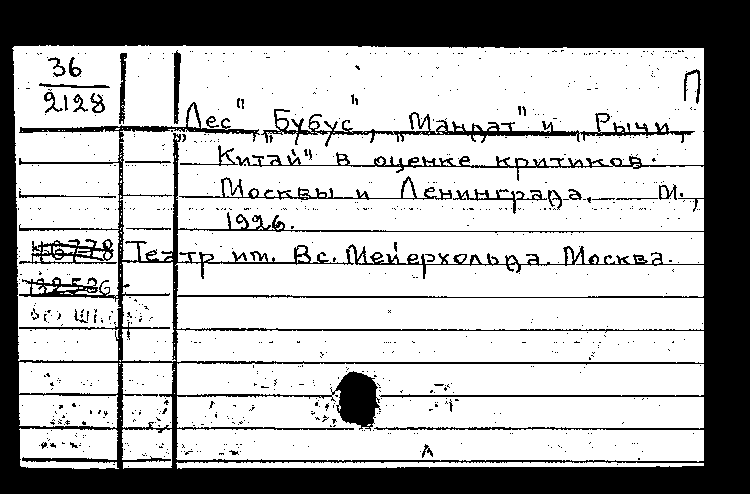 36
2128
П
„Лес", „Бубус", „Мандат" и „Рычи,
Китай" в оценке критиков
Москвы и Ленинграда. М.,
1926.
Театр им. Вс. Мейерхольда. Москва.